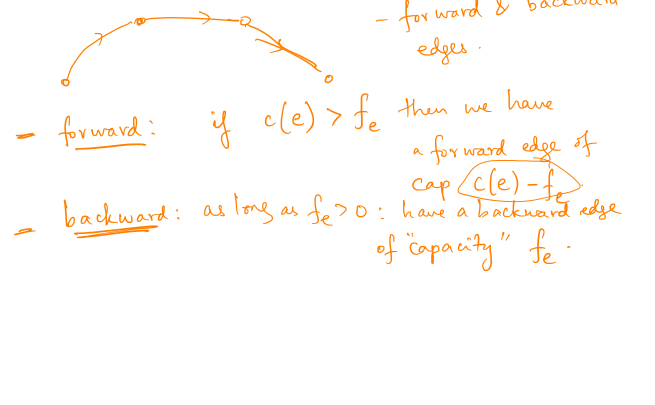 - forward & backward
edges.
- forward: if c(e) > fe then we have
a forward edge of
cap c(e) - fe
- backward: as long as fe > 0 : have a backward edge
of "capacity" fe.